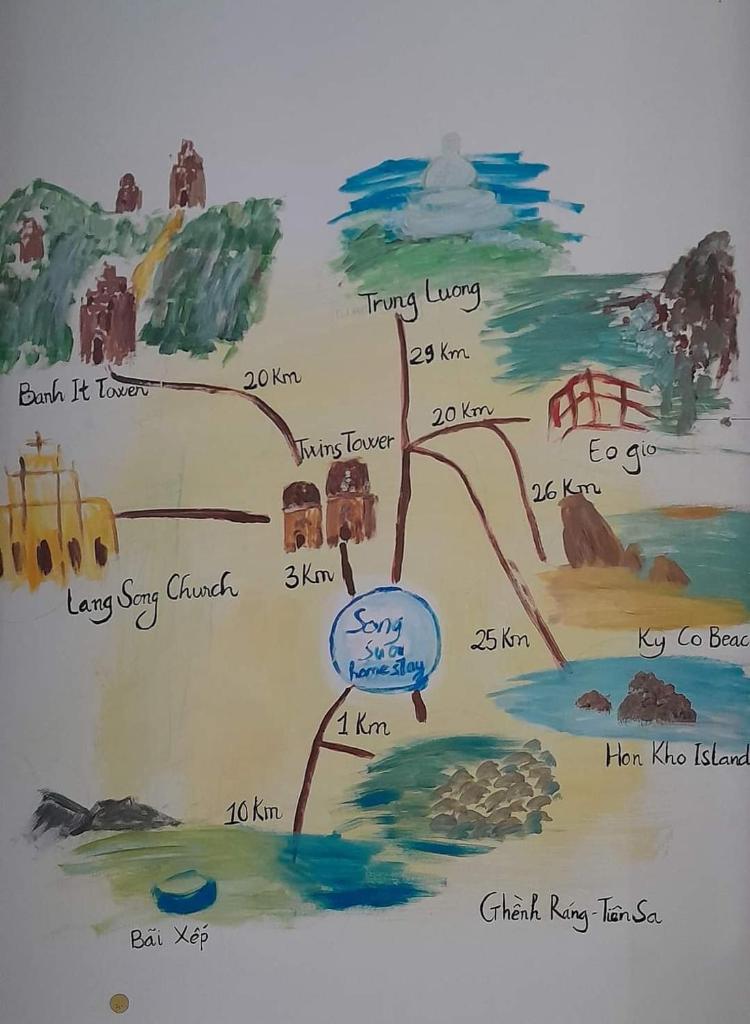 Trung Luong
29 Km
Banh It Tower
20 Km
20 Km
Twins Tower
Eo gio
26 Km
Lang Song Church
3 Km
Song
Suối
homestay
25 Km
Ky Co Beac
1 Km
Hon Kho Island
10 Km
Ghềnh Ráng - Tiên Sa
Bãi Xếp